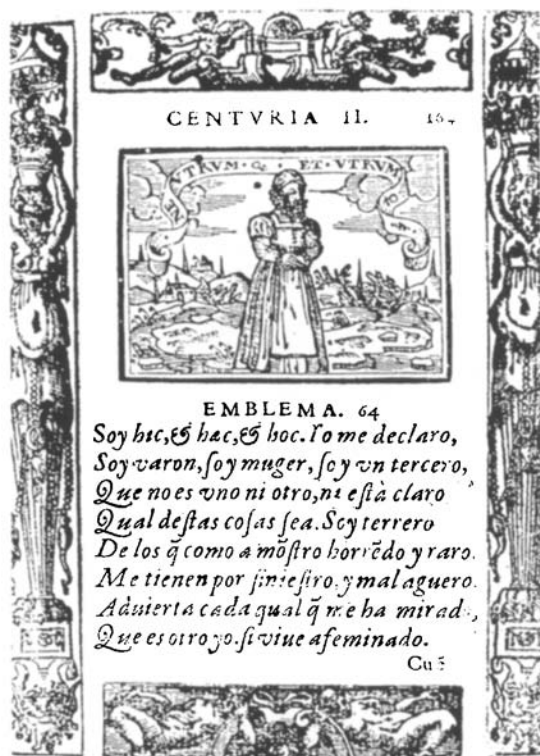 CENTVRIA II. 164
NEVTRVMQ; ET VTRVM
EMBLEMA. 64
Soy hic, & hæc, & hoc. Yo me declaro,
Soy varon, ſoy muger, ſoy vn tercero,
Que no es vno ni otro, ni eſtà claro
Qual deſtas coſas ſea. Soy terrero
De los q̃ como a mõſtro horrẽdo y raro.
Me tienen por ſinieſtro, y mal aguero.
Aduierta cada qual q̃ me ha mirad
Que es otro yo. ſi viue afeminado.